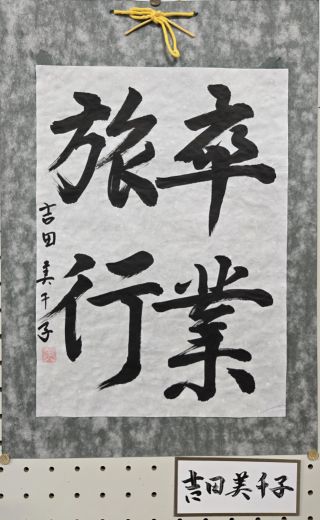 卒業
旅行
吉田美千子
吉田美千子